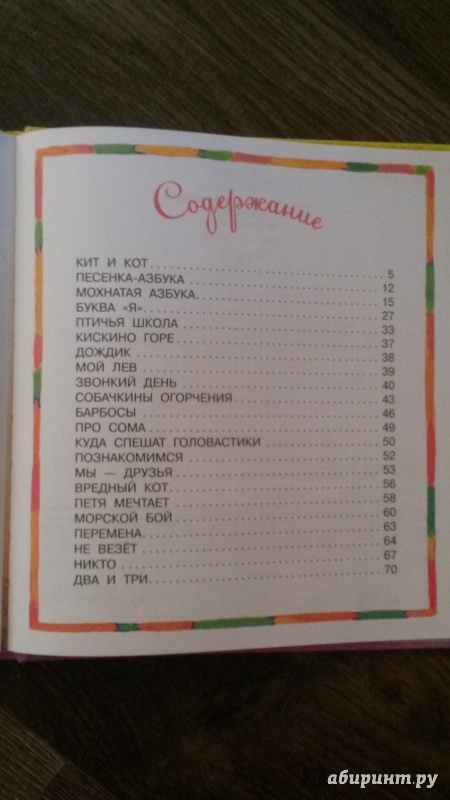 Содержание
КИТ И КОТ.................... 5
ПЕСЕНКА-АЗБУКА.................... 12
МОХНАТАЯ АЗБУКА.................... 15
БУКВА «Я».................... 27
ПТИЧЬЯ ШКОЛА.................... 33
КИСКИНО ГОРЕ.................... 37
ДОЖДИК.................... 38
МОЙ ЛЕВ.................... 39
ЗВОНКИЙ ДЕНЬ.................... 40
СОБАЧКИНЫ ОГОРЧЕНИЯ.................... 43
БАРБОСЫ.................... 46
ПРО СОМА.................... 49
КУДА СПЕШАТ ГОЛОВАСТИКИ.................... 50
ПОЗНАКОМИМСЯ.................... 52
МЫ — ДРУЗЬЯ.................... 53
ВРЕДНЫЙ КОТ.................... 56
ПЕТЯ МЕЧТАЕТ.................... 58
МОРСКОЙ БОЙ.................... 60
ПЕРЕМЕНА.................... 63
НЕ ВЕЗЁТ.................... 64
НИКТО.................... 67
ДВА И ТРИ.................... 70
Лабиринт.ру